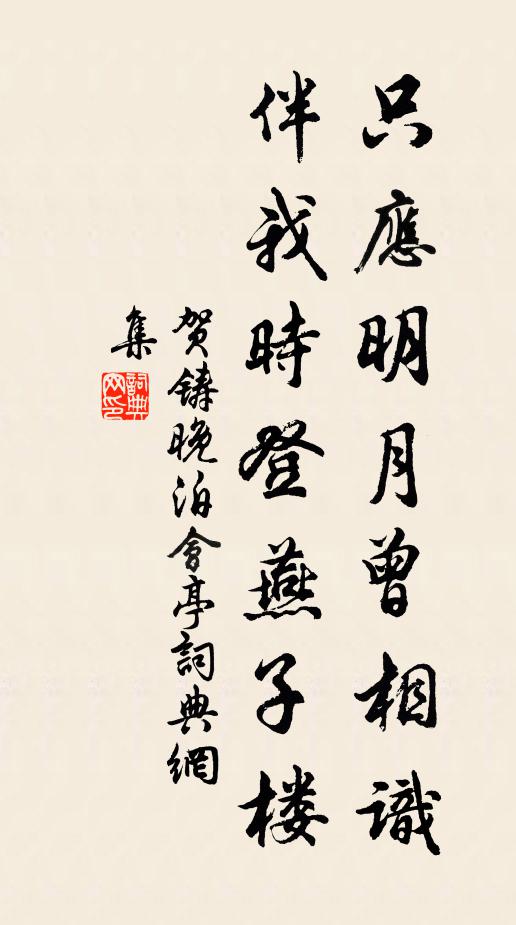 只應明月曾相識
伴我時登燕子楼
賀鑄晚泊會亭詞典網
集
詞典
网印